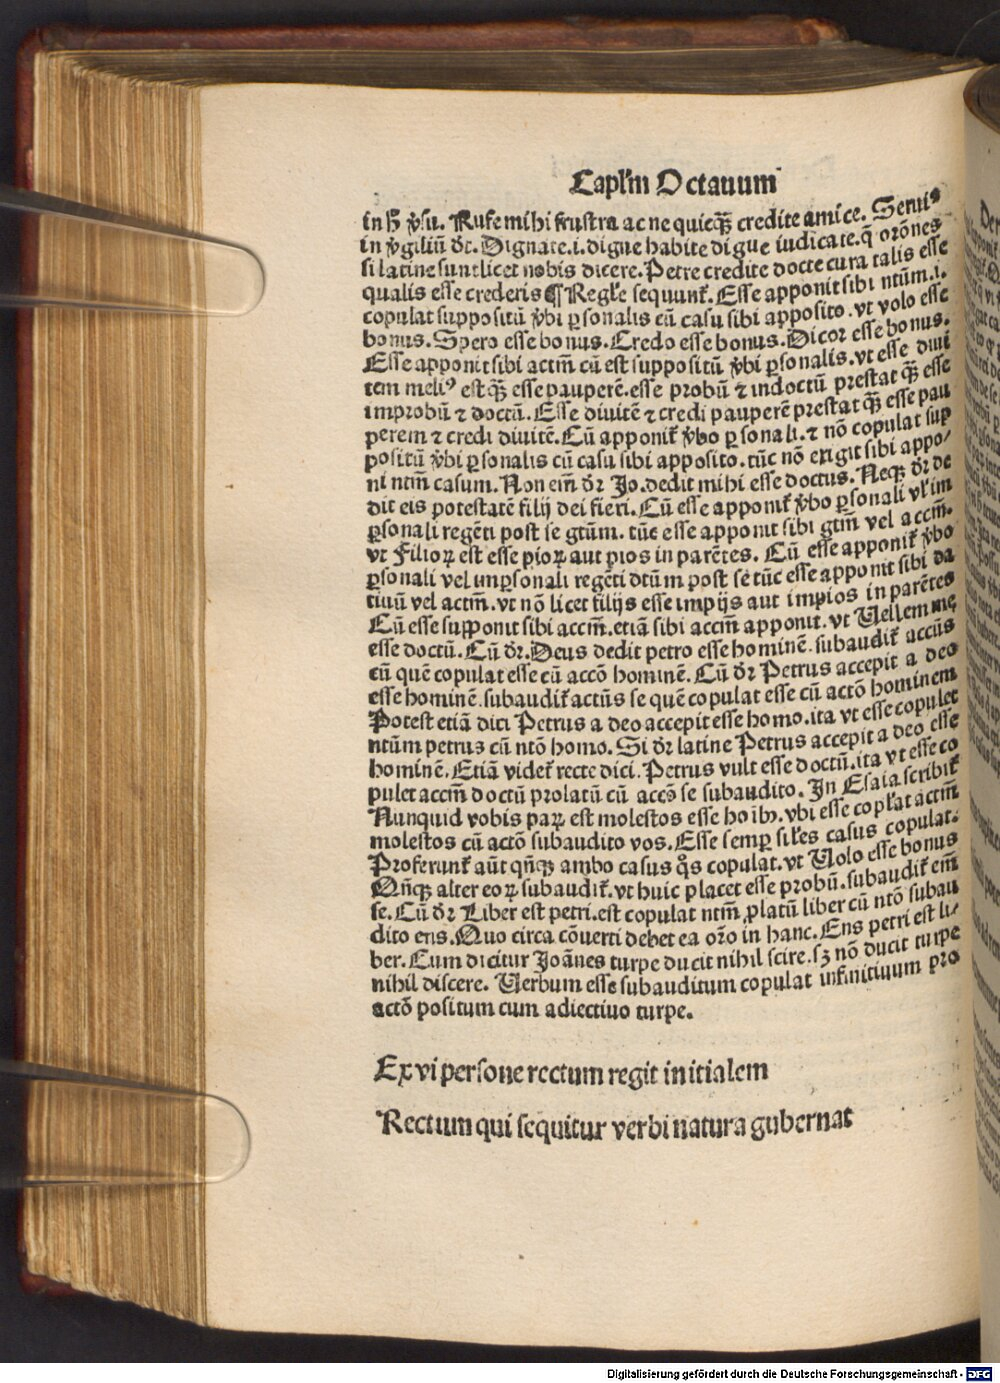 Capl'm Octauum
in h̄ v̄su. Rufe mihi frustra ac ne quicq̄ȝ credite amice. Serui⁹
in v̄giliū d̄c. Dignare.i.digne habite digne iudicate.q̄ orōnes
si latine sunt licet nobis dicere. Petre credite docte cura talis esse
qualis esse crederis ¶ Regl'e sequunt᷑. Esse apponit sibi ntūm.i.
copulat suppositū v̄bi ꝑsonalis cū casu sibi apposito. vt volo esse
bonus. Spero esse bonus. Credo esse bonus. Dicor esse bonus.
Esse apponit sibi actm̄ cū est suppositū v̄bi ꝑsonalis. vt esse diui
tem meli⁹ est q̄ȝ esse pauperē. esse probū ⁊ indoctū prestat q̄ȝ esse
improbū ⁊ doctū. Esse diuitē ⁊ credi pauperē prestat q̄ȝ esse pau
perem ⁊ credi diuitē. Cū apponit᷑ v̄bo ꝑsonali. ⁊ nō copulat sup
positū v̄bi ꝑsonalis cū casu sibi apposito. tūc nō exigit sibi appo/
ni ntm̄ casum. Non em̄ dr̄ Jo. dedit mihi esse doctus. Neqȝ dr̄ de
dit eis potestatē filij dei fieri. Cū esse apponit᷑ v̄bo ꝑsonali vl' im
ꝑsonali regēti post se gtūm. tūc esse apponit sibi gtm̄ vel accm̄.
vt Filioꝝ est esse pioꝝ aut pios in parētes. Cū esse apponit᷑ v̄bo
ꝑsonali vel inꝑsonali regēti dtūm post se tūc esse apponit sibi da
tiuū vel actm̄. vt nō licet filijs esse impijs aut impios in parētes
Cū esse supponit sibi accm̄. etiā sibi accm̄ apponit. vt Uellem me
esse doctū. Cū dr̄. Deus dedit petro esse hominē. subaudit᷑ accūs
cū quē copulat esse cū accō hominē. Cū dr̄ Petrus accepit a deo
esse hominē. subaudit᷑ actūs se quē copulat esse cū actō hominem
Potest etiā dici Petrus a deo accepit esse homo. ita vt esse copulet
ntūm petrus cū ntō homo. Si dr̄ latine Petrus accepit a deo esse
hominē. Etiā videt᷑ recte dici. Petrus vult esse doctū. ita vt esse co
pulet accm̄ doctū prolatū cū accō se subaudito. In Esaia scribit᷑
Nunquid vobis paꝝ est molestos esse hoibȝ. vbi esse copl'at actm̄
molestos cū actō subaudito vos. Esse semꝑ sil'es casus copulat.
Proferunt᷑ aūt qn̄qȝ ambo casus q̄s copulat. vt Uolo esse bonus
Qn̄qȝ alter eoꝝ subaudit᷑. vt huic placet esse probū. subaudit᷑ em̄
se. Cū dr̄ Liber est petri. est copulat ntm̄ ꝓlatū liber cū ntō subau
dito ens. Quo circa cōuerti debet ea orō in hanc. Ens petri est li/
ber. Cum dicitur Joānes turpe ducit nihil scire. sȝ nō ducit turpe
nihil discere. Uerbum esse subauditum copulat infinitiuum pro
actō positum cum adiectiuo turpe.
Ex vi persone rectum regit initialem
Rectum qui sequitur verbi natura gubernat
Digitalisierung gefördert durch die Deutsche Forschungsgemeinschaft - DFG